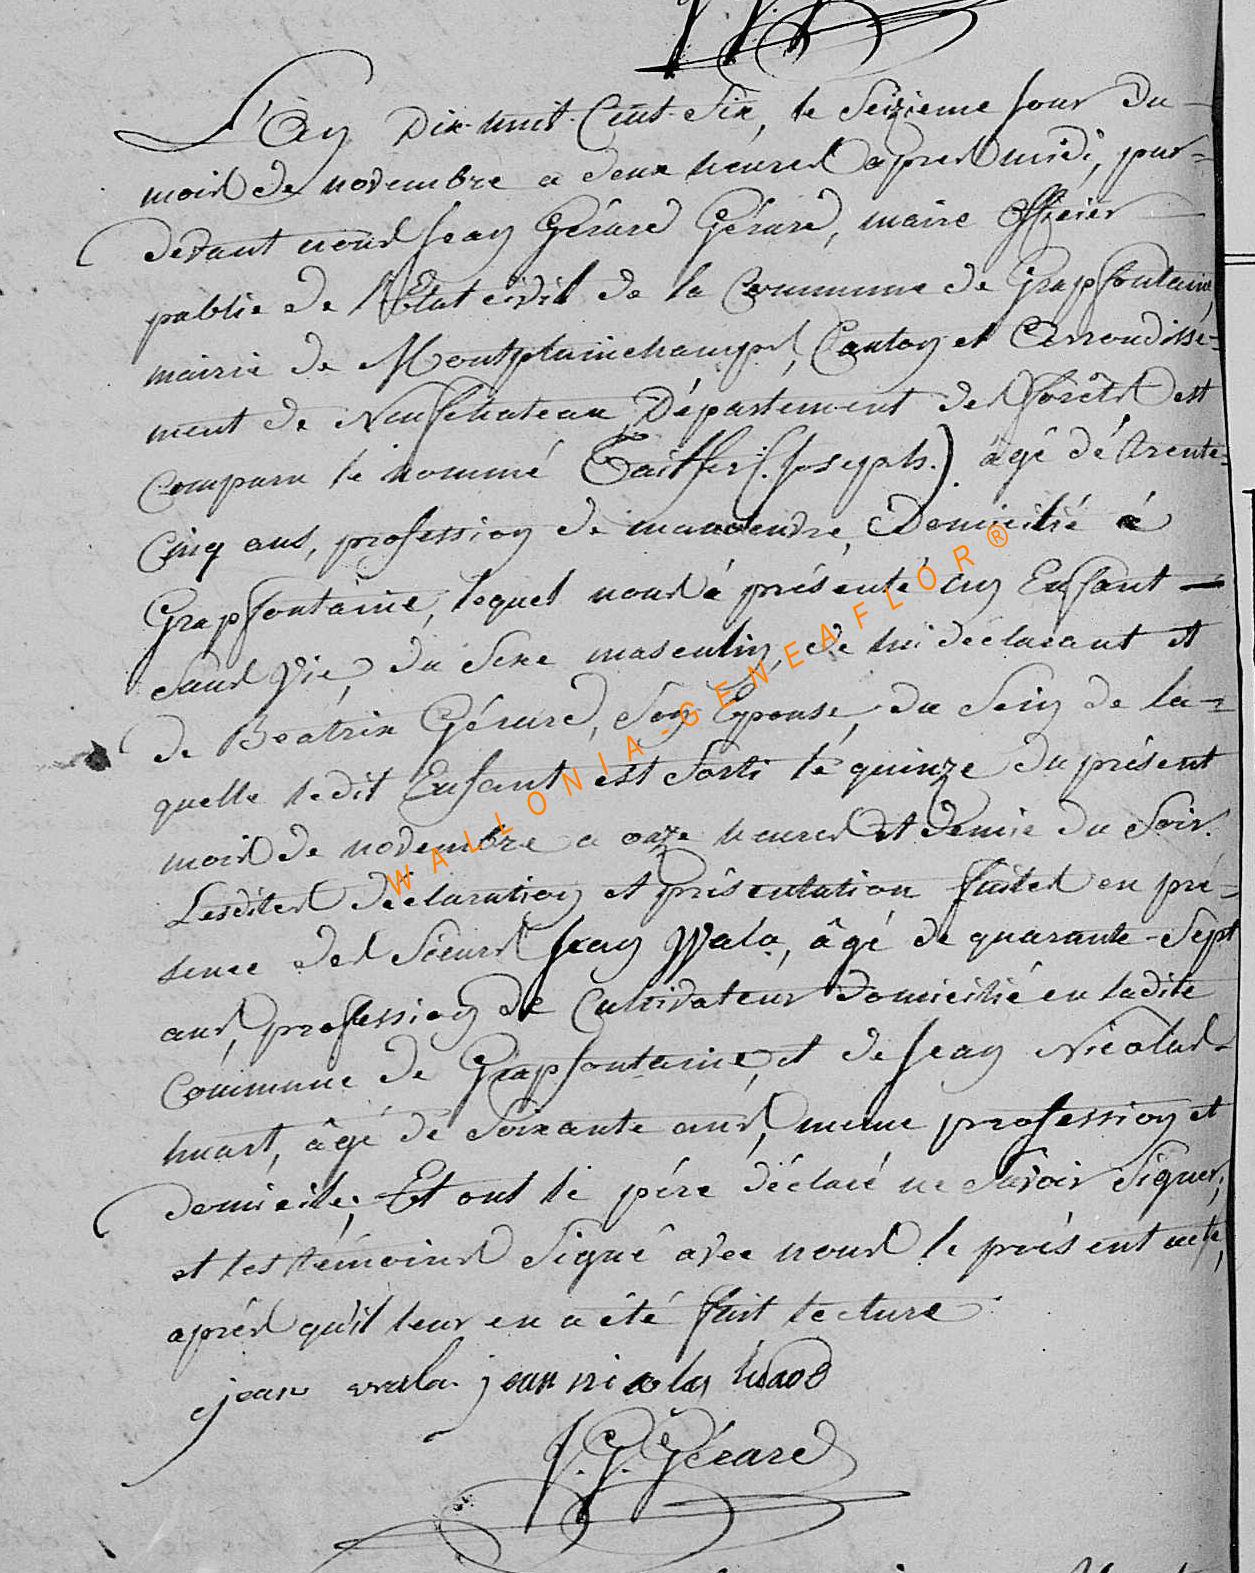 L'An Dix-huit-Cent-Six, le Seizieme jour du-
mois de novembre a deux heures apres midi, par=
devant nous Jean Gérard Gérard, maire officier
public de l'Etat civil de la Commune de Grapfontaine,
mairie de Montplainchamps, Canton et Arrondisse=
ment de Neufchateau, Département des forêts est
comparu le nommé (Joseph.) âgé de trente=
Cinq ans, profession de manoeuvre, Domicilié à
Grapfontaine, lequel nous à présenté un Enfant -
sans Vie, du Sexe masculin, de lui déclarant et
de Béatrix Gérard, son Epouse, du Sein de la=
quelle ledit Enfant est Sorti le quinze du présent
mois de novembre a onze heures et demie du Soir.
Lesdites déclaration et présentation faites en pré=
sence des Sieurs Jean Wala, âgé de quarante-Sept
ans, profession de Cultivateur domicilié en ladite
Commune de Grapfontaine, et de Jean Nicolas-
huart, âgé de Soixante ans, meme profession et
domicile; Et ont le pére déclaré ne Savoir Signer,
et les témoins Signé avec nous le présent acte,
aprés qu'il leur en a été fait lecture
jean wala jean nicolas
J. G. Gérard
WALLONIA-GENEAFLOR®